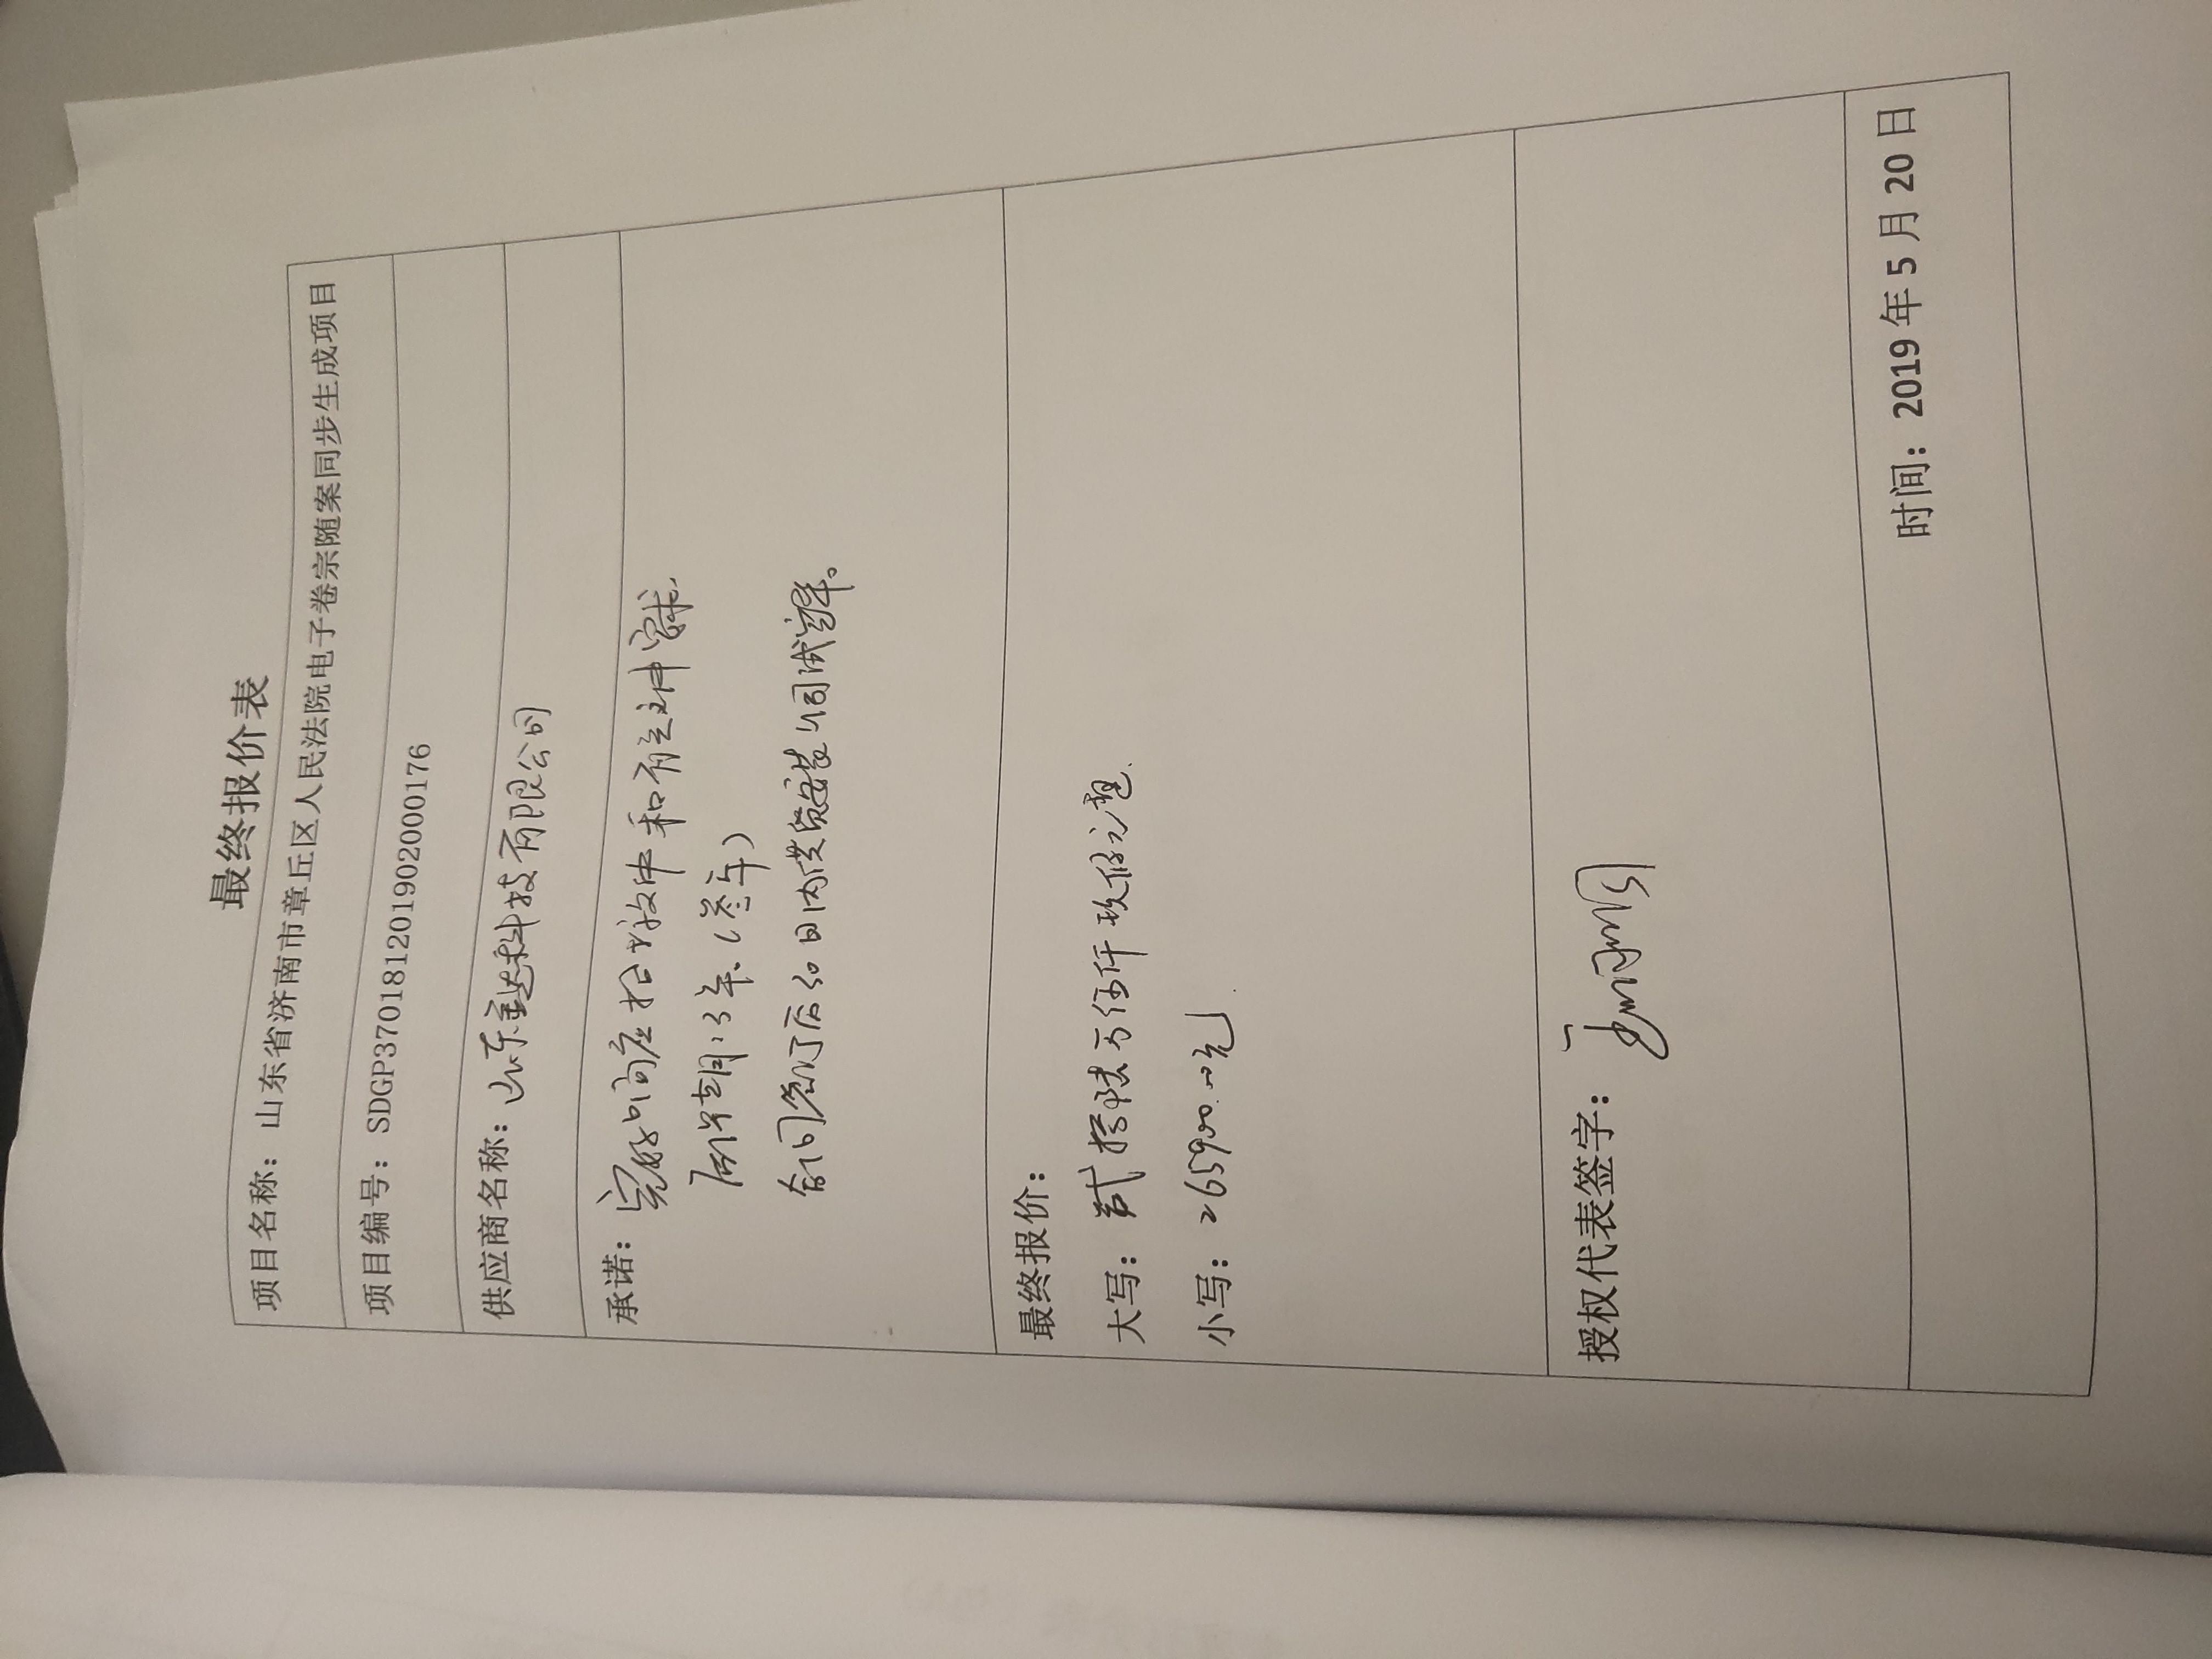 最终报价表
项目名称：山东省济南市市章丘区人民法院电子卷宗随案同步生成项目
项目编号：SDGP370181201902000176
供应商名称：山东 达科技有限公司
承诺：完 响应招 文件和
质保期：3年（叁年）
合同签订后30日内 安装 调试完毕。
最终报价：
大写：贰拾陆万伍仟玖佰元整
小写：265900.00元
授权代表签字：
时间：2019年5月20日